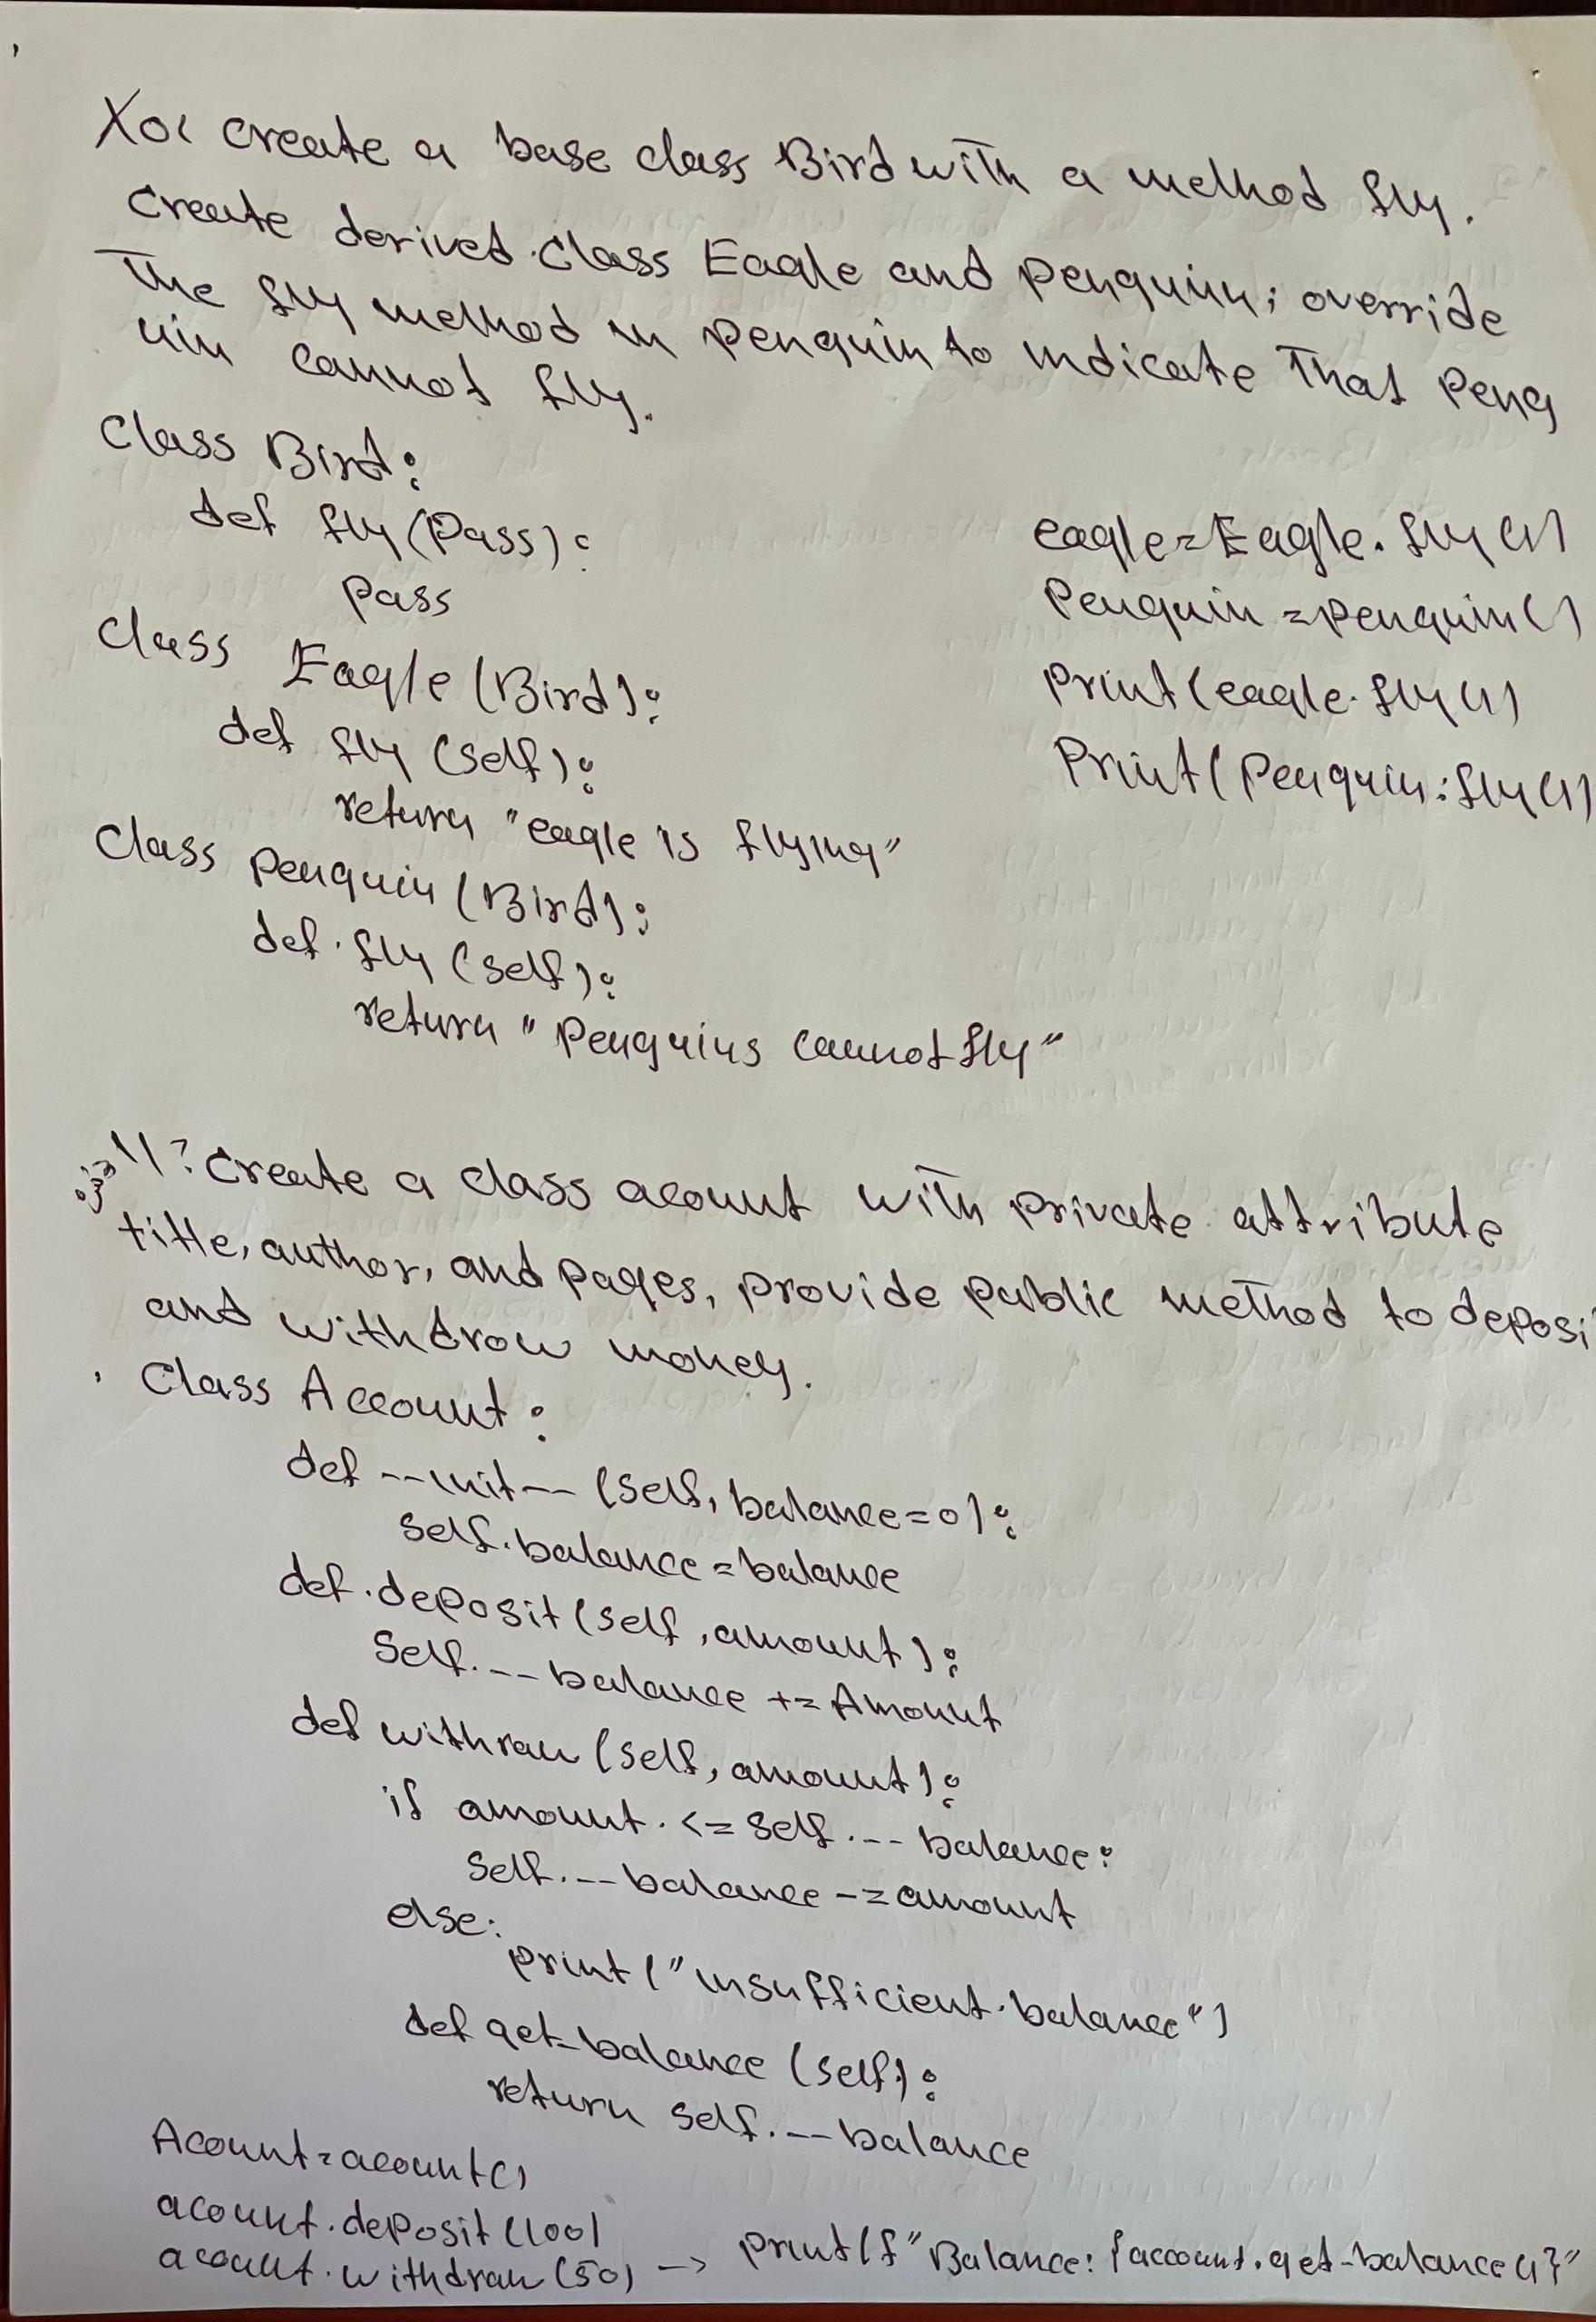 create a base class Bird with a method fly.
Create derived class Eagle and penguin; override
The fly method in penguin to indicate That Peng
uin cannot fly.
Class Bird:
def fly (Pass):
pass
Class Eagle (Bird):
def fly (self):
return "eagle is flying"
Class penguin (Bird):
def fly (self):
return "Penguins cannot fly"
eagle=Eagle.fly()
Penguin =penguin()
print(eagle.fly())
Print(Penguin:fly())
11? Create a class acount with private attribute
title, author, and pages, provide public method to deposi
and withdrow money.
Class Account:
def __init__ (self, balance=0):
self.balance=balance
def deposit(self, amount):
Self.__balance += Amount
def withrau (self, amount):
if amount. <= self.__balance:
self.__balance -=amount
else:
print("insufficient balance")
def get_balance (self):
return self.__balance
Acount=acount()
acount.deposit(100)
acount.withdrau(50) -> print(f"Balance: {account.get_balance()}"